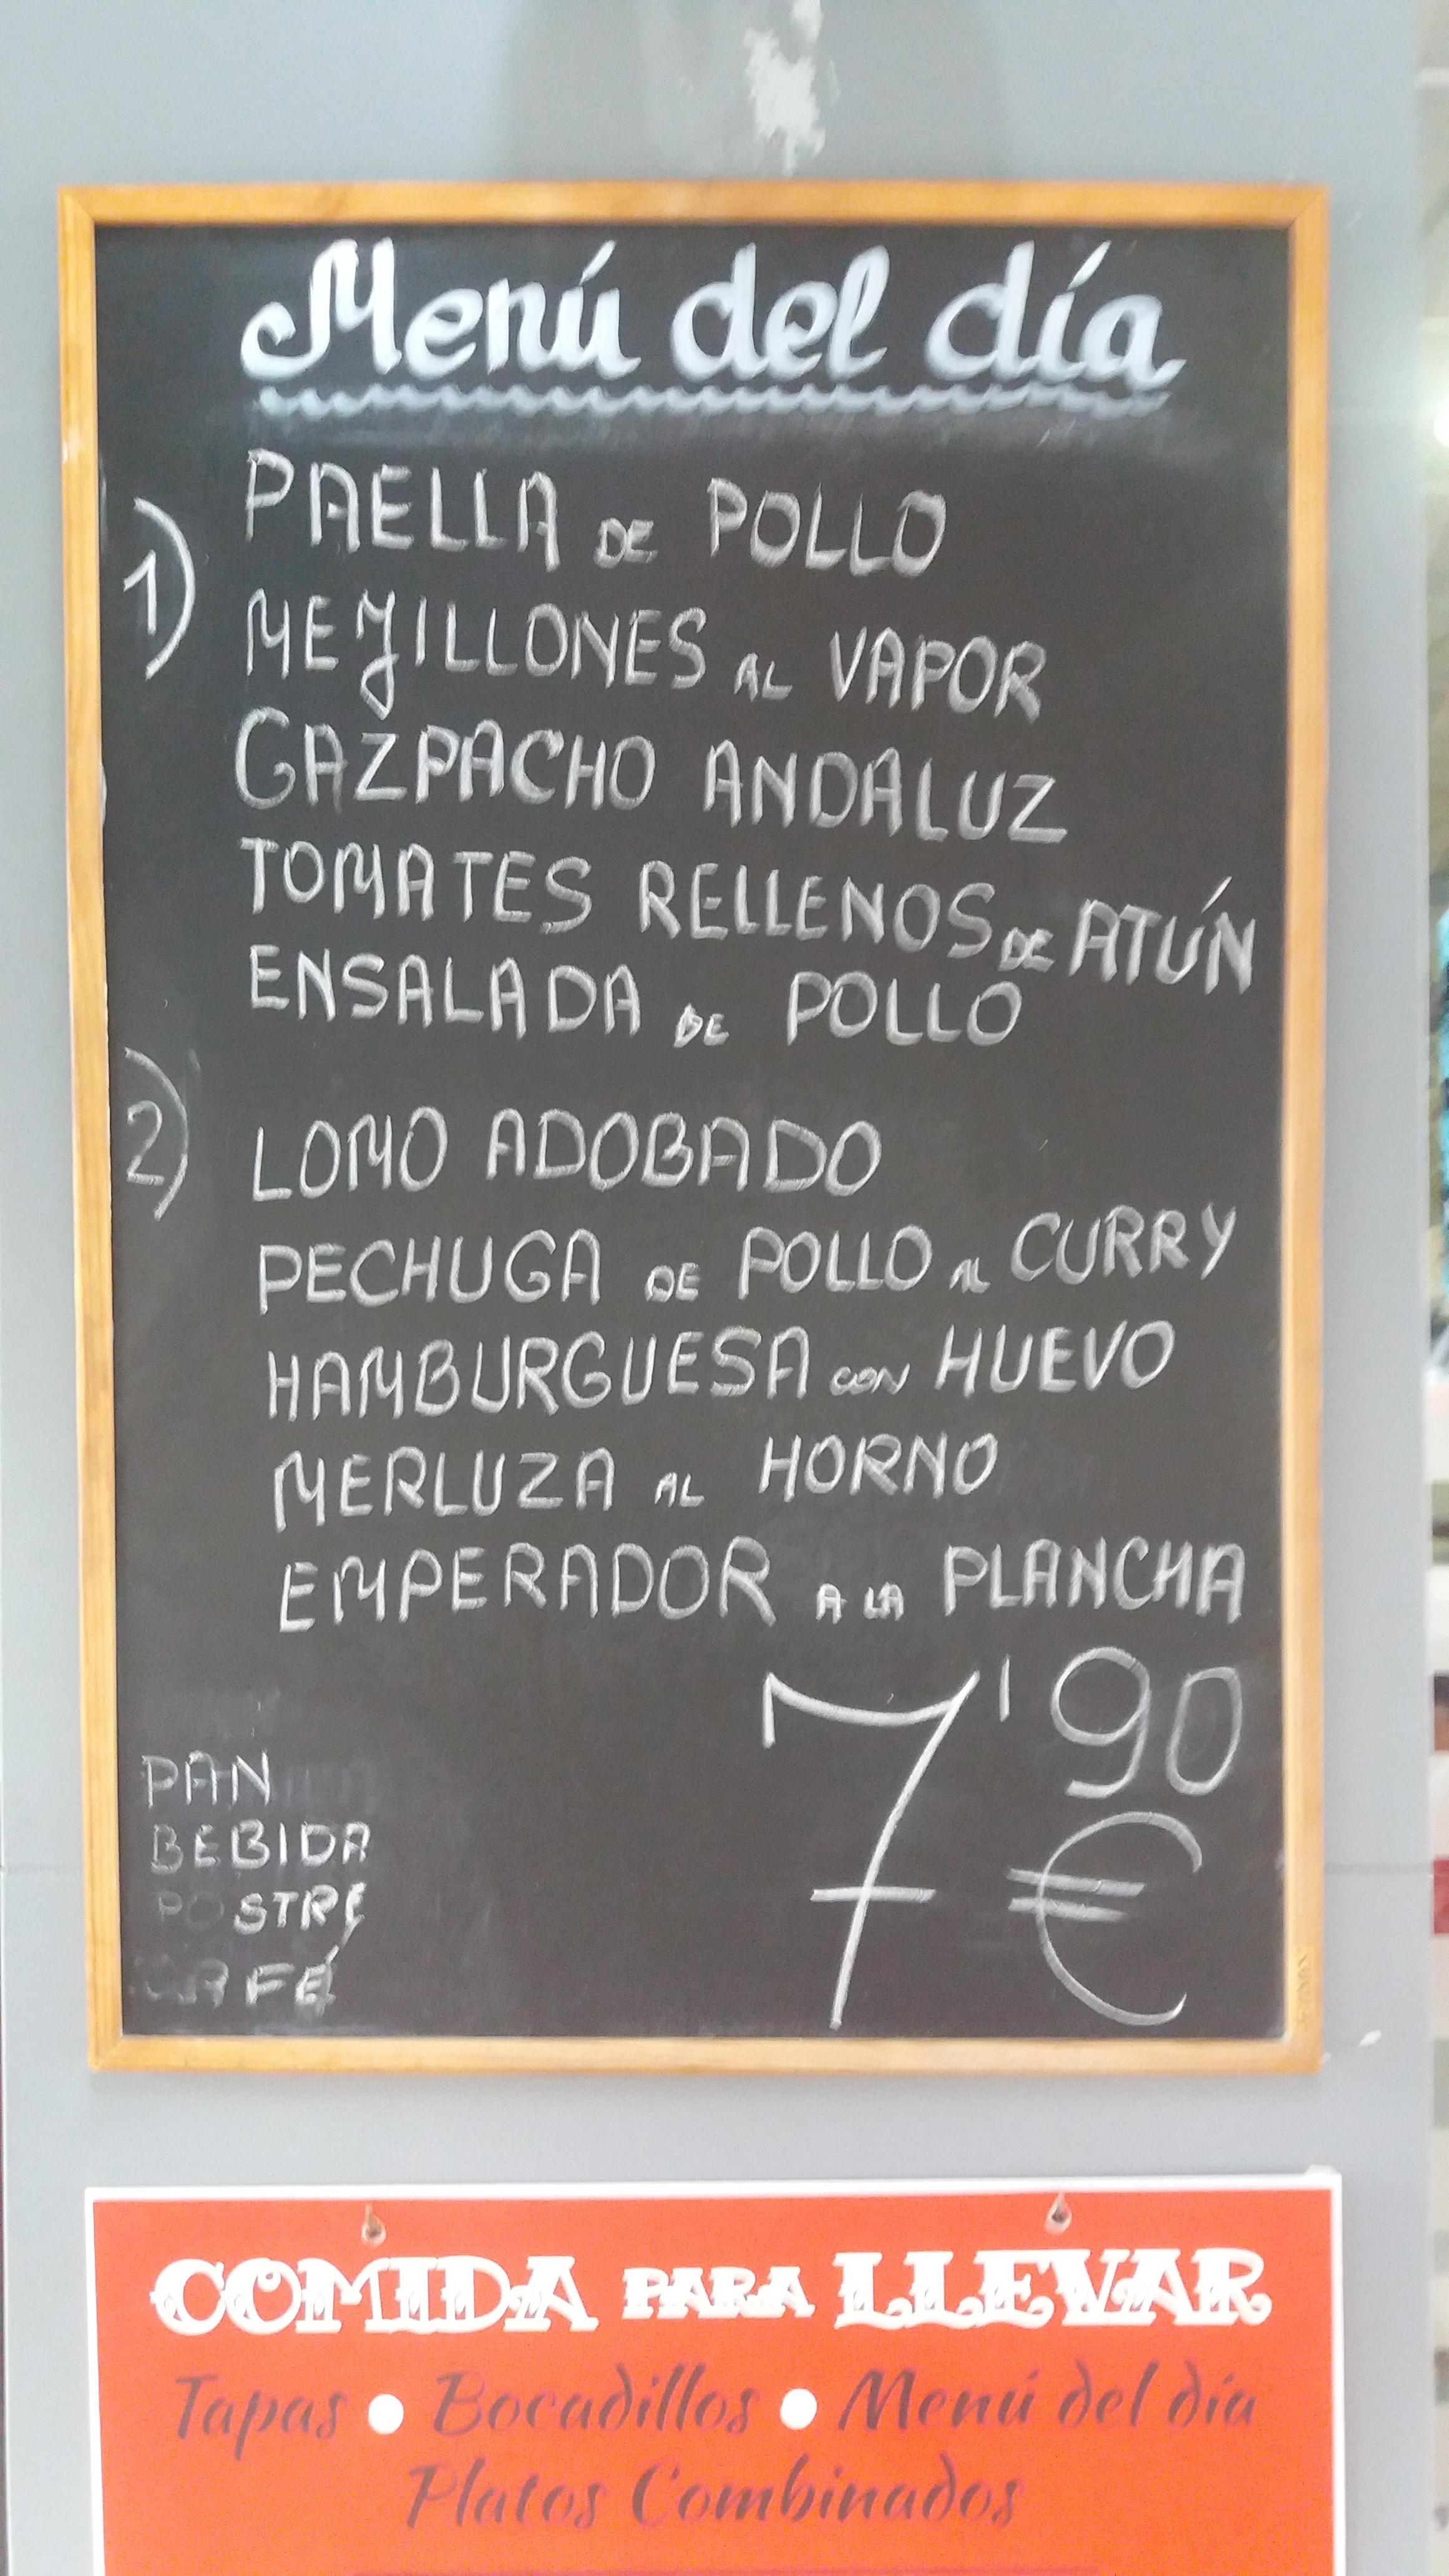 Menú del día
1) PAELLA DE POLLO
MEJILLONES AL VAPOR
GAZPACHO ANDALUZ
TOMATES RELLENOS DE ATÚN
ENSALADA DE POLLO
2) LOMO ADOBADO
PECHUGA DE POLLO AL CURRY
HAMBURGUESA CON HUEVO
MERLUZA AL HORNO
EMPERADOR A LA PLANCHA
7'90
€
PAN
BEBIDA
POSTRE
CAFÉ
COMIDA PARA LLEVAR
Tapas • Bocadillos • Menú del día
Platos Combinados